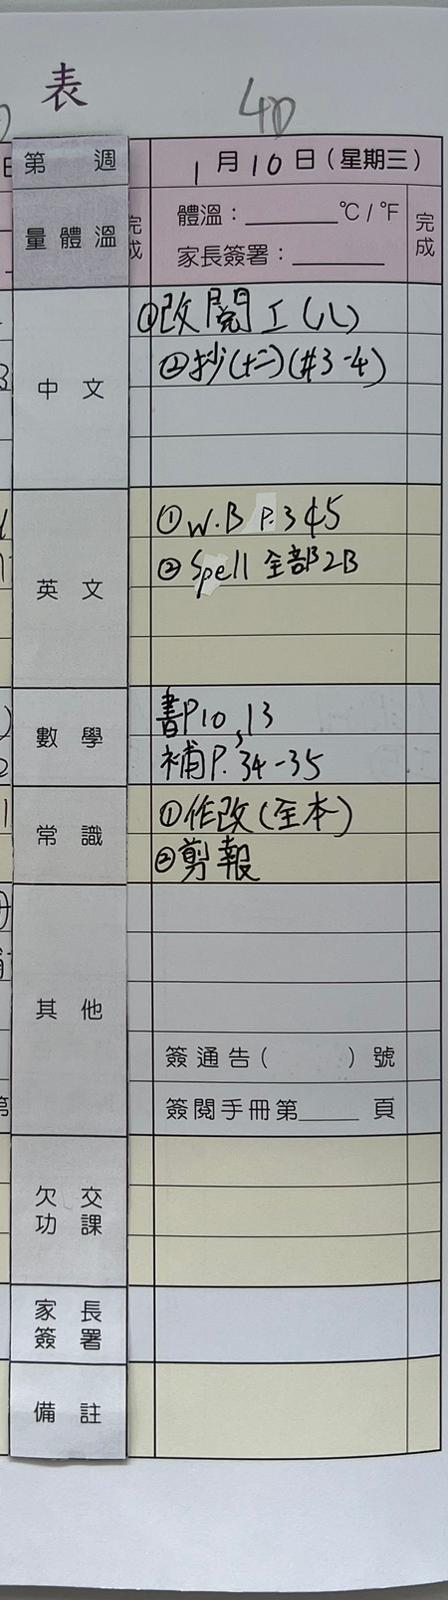 表
4D
第 週
1月10日(星期三)
量體溫
體溫：________℃/℉
家長簽署：________
完成
中文
①改閱工(八)
②抄(十二)(#3-4)
英文
①W.B P.3-5
②Spell 全部2B
數學
書P10,13
補P.34-35
常識
①作改(全本)
②剪報
其他
簽通告( )號
簽閱手冊第_____頁
欠交功課
家長簽署
備註